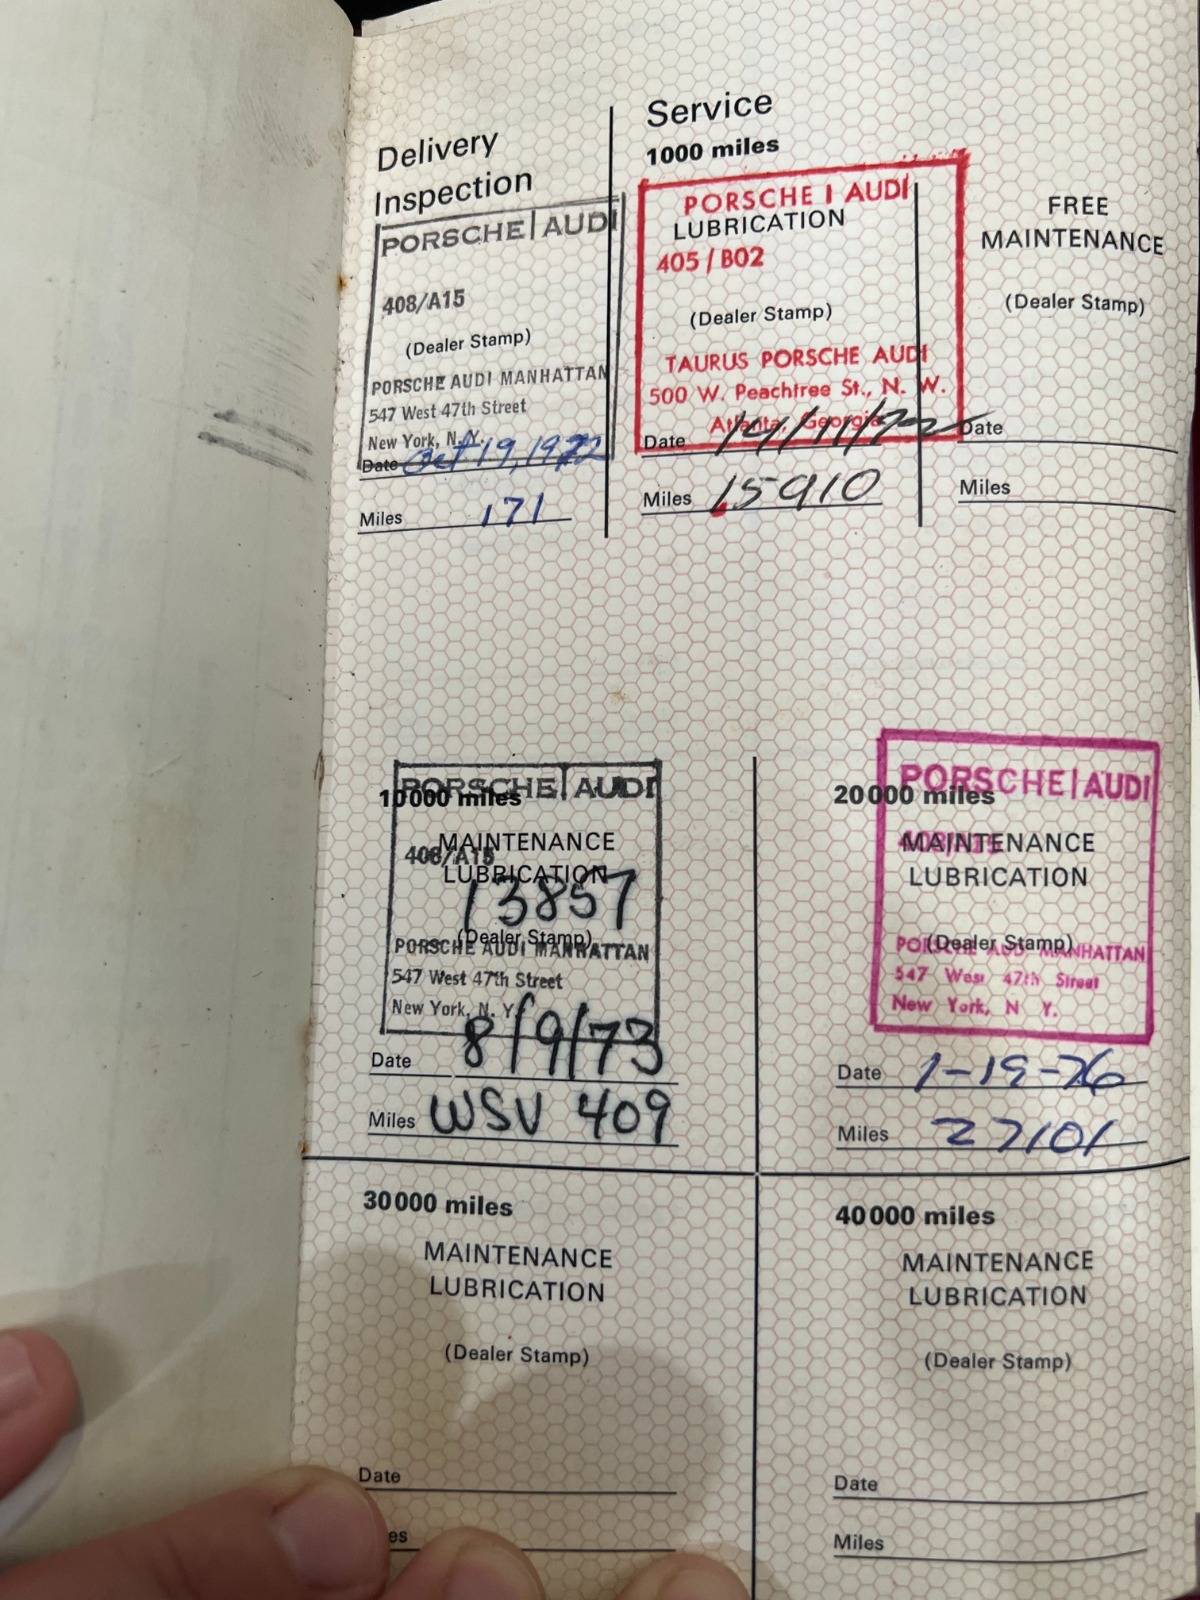 Delivery
Inspection
PORSCHE | AUDI
408/A15
(Dealer Stamp)
PORSCHE AUDI MANHATTAN
547 West 47th Street
New York, N.Y.
Date Oct 19, 1972
Miles 171
Service
1000 miles
PORSCHE | AUDI
LUBRICATION
405 / B02
(Dealer Stamp)
TAURUS PORSCHE AUDI
500 W. Peachtree St., N. W.
Atlanta, Georgia
Date 14/11/72
Miles 15910
FREE
MAINTENANCE
(Dealer Stamp)
Date
Miles
PORSCHE | AUDI
10000 miles
MAINTENANCE
408/A15
LUBRICATION
13857
(Dealer Stamp)
PORSCHE AUDI MANHATTAN
547 West 47th Street
New York, N. Y.
Date 8/9/73
Miles WSV 409
PORSCHE | AUDI
20000 miles
MAINTENANCE
LUBRICATION
(Dealer Stamp)
PORSCHE AUDI MANHATTAN
547 West 47th Street
New York, N Y.
Date 1-19-76
Miles 27101
30000 miles
MAINTENANCE
LUBRICATION
(Dealer Stamp)
Date
40000 miles
MAINTENANCE
LUBRICATION
(Dealer Stamp)
Date
Miles